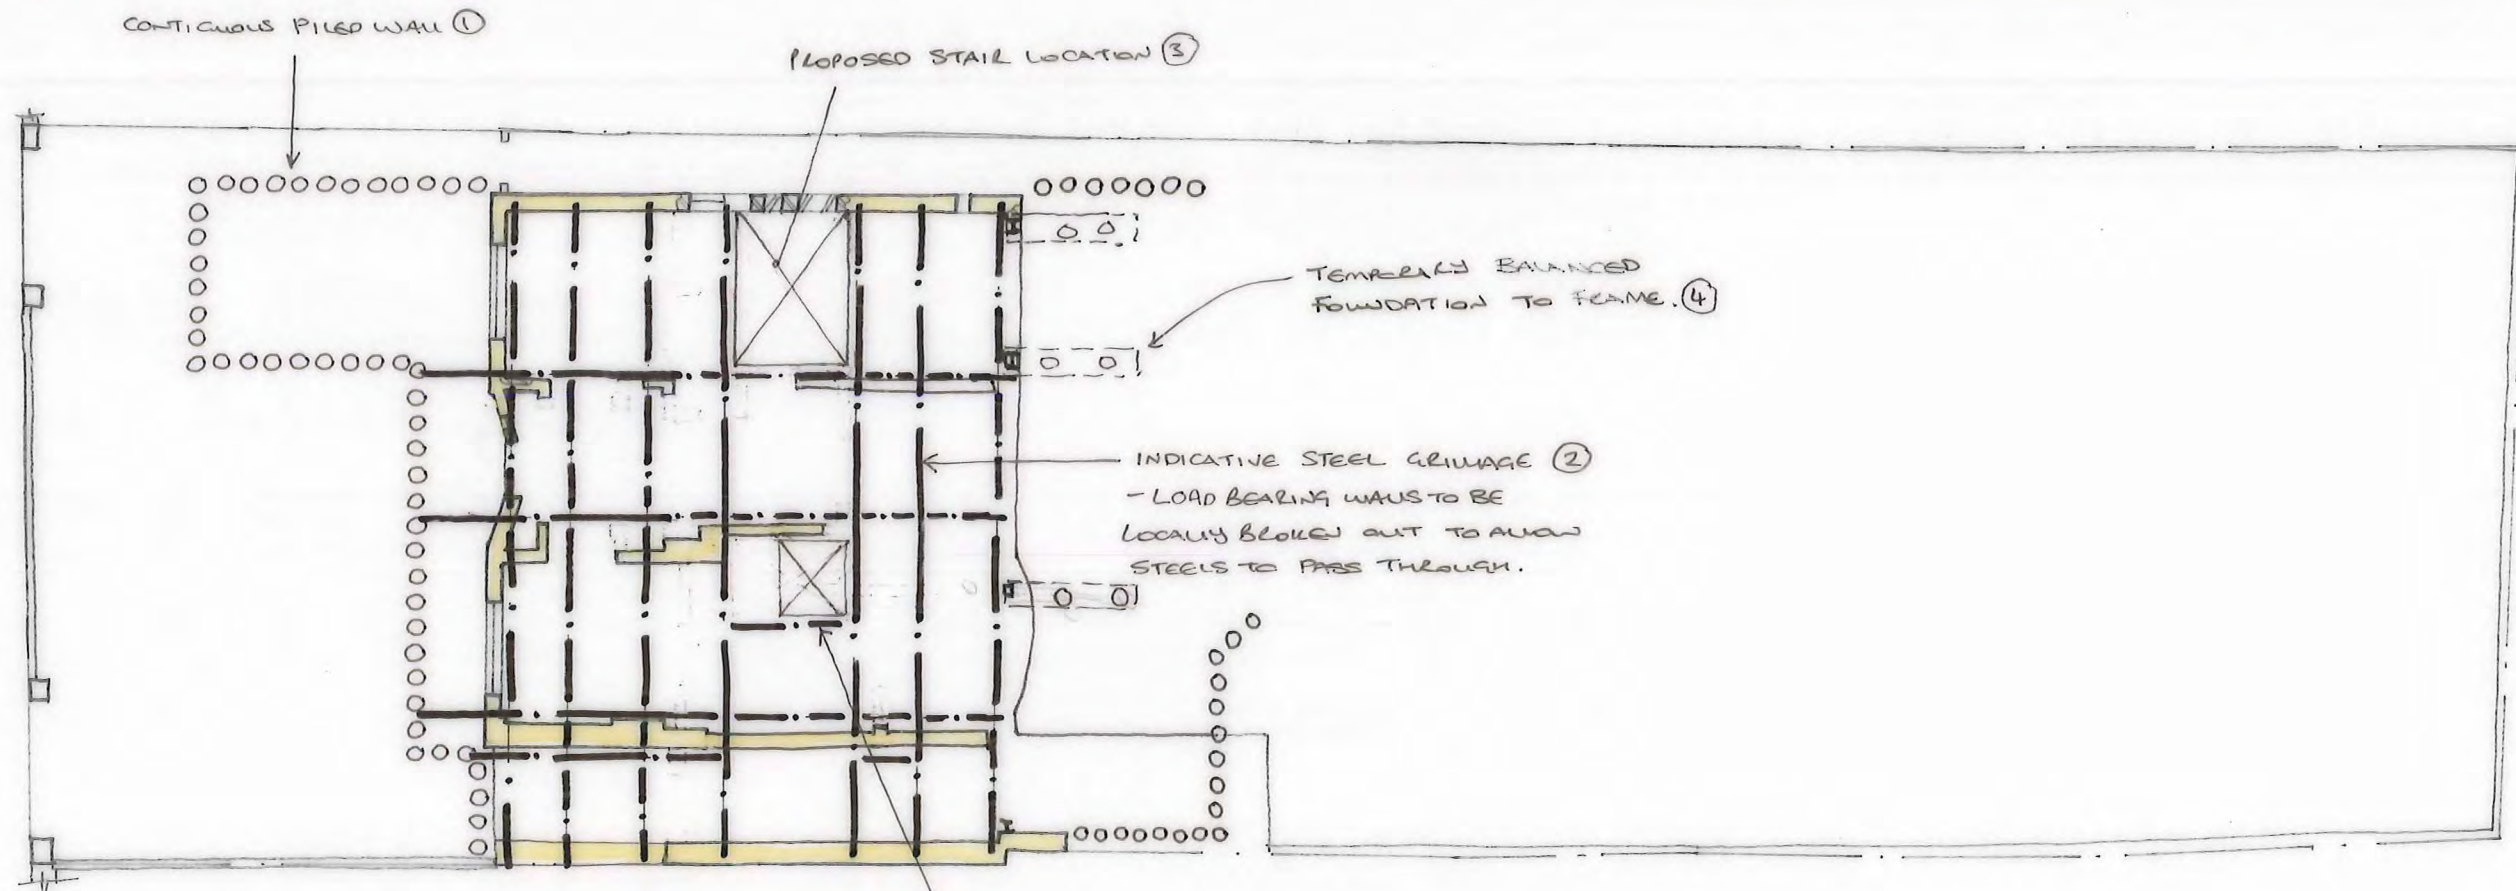 CONTIGUOUS PILED WALL ①
PROPOSED STAIR LOCATION ③
TEMPORARY BALANCED
FOUNDATION TO FRAME. ④
INDICATIVE STEEL GRILLAGE ②
- LOAD BEARING WALLS TO BE
LOCALLY BROKEN OUT TO ALLOW
STEELS TO PASS THROUGH.